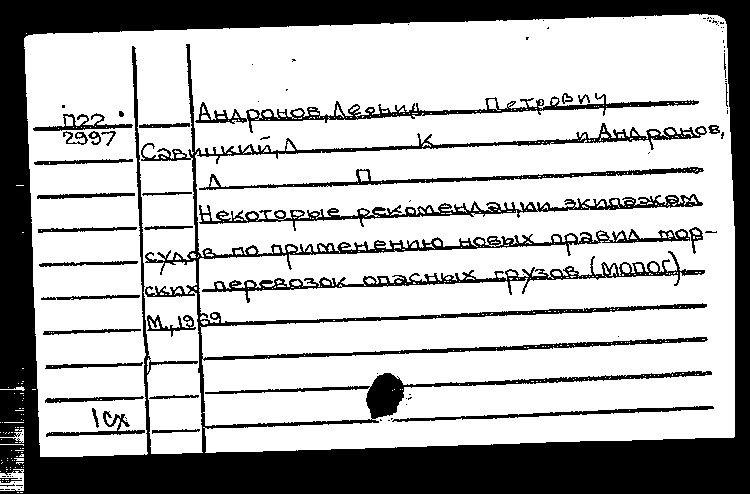 Андронов, Леонид Петрович
П22
2997
Савицкий, Л К и Андронов,
Л П
Некоторые рекомендации экипажам
судов по применению новых правил мор-
ских перевозок опасных грузов (МОПОГ)
М., 1969.
1сх